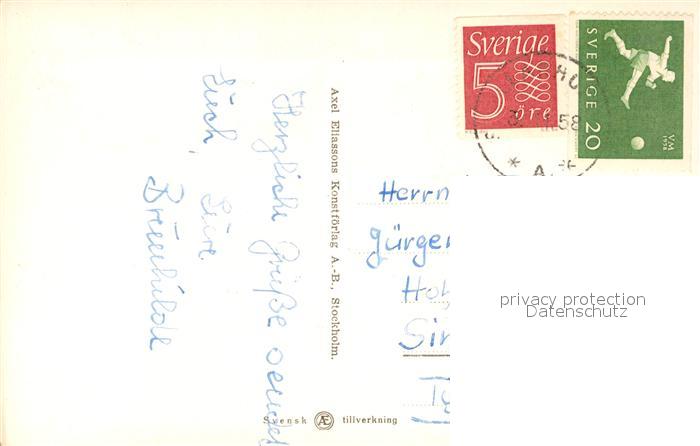 Herzliche Grüße sendet
Euch, Eure
Brünhilde
Axel Eliassons Konstförlag A.-B., Stockholm.
Svensk AE tillverkning
Sverige
5
öre
SVERIGE 20
VM
1958
58
* A *
Herrn
Jürgen
privacy protection
Datenschutz